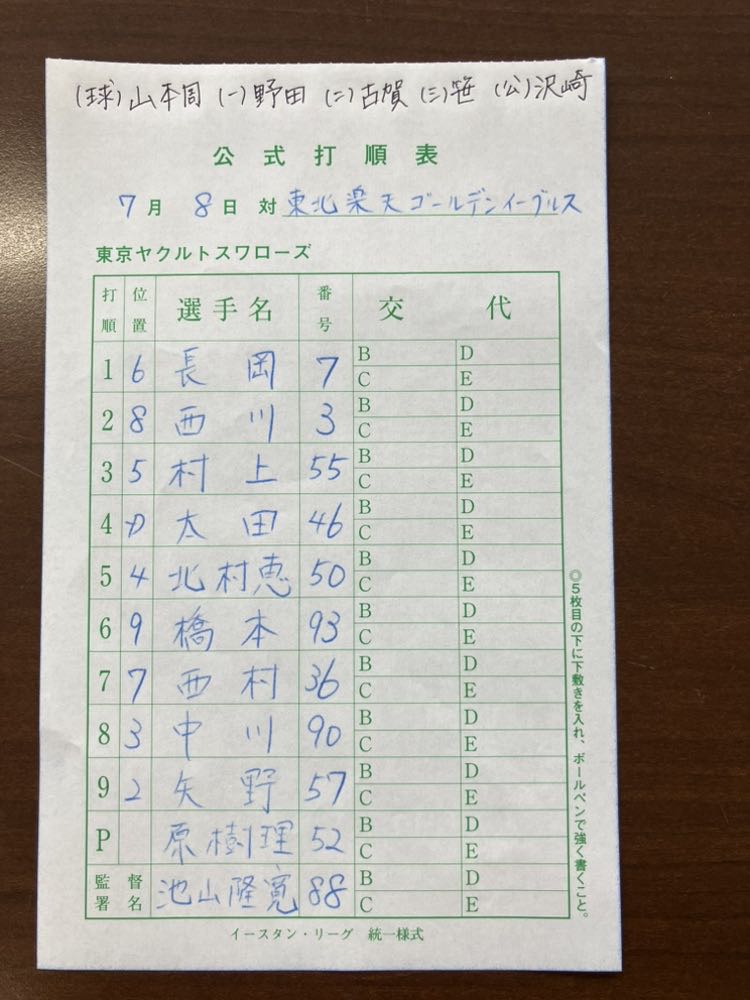 (球)山本周 (一)野田 (二)古賀 (三)笹 (公)沢崎
公式打順表
7月 8日 対 東北楽天ゴールデンイーグルス
東京ヤクルトスワローズ
打順 位置 選手名 番号 交代
1 6 長岡 7 B D C E
2 8 西川 3 B D C E
3 5 村上 55 B D C E
4 D 太田 46 B D C E
5 4 北村恵 50 B D C E
6 9 橋本 93 B D C E
7 7 西村 36 B D C E
8 3 中川 90 B D C E
9 2 矢野 57 B D C E
P 原樹理 52 B D C E
監督署名 池山隆寛 88 B D C E
◎5枚目の下に下敷きを入れ、ボールペンで強く書くこと。
イースタン・リーグ 統一様式